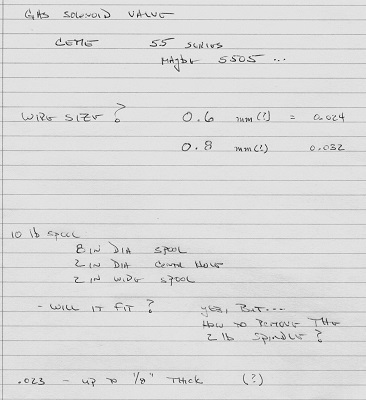 GAS SOLONOID VALVE
CEME 55 SERIES
MAYBE 5505 ...
WIRE SIZE ? 0.6 mm(?) = 0.024
0.8 mm(?) 0.032
10 lb SPOOL
8 IN DIA SPOOL
2 IN DIA CENTR HOLE
2 IN WIDE SPOOL
- WILL IT FIT ? YES, BUT...
HOW TO REMOVE THE
2 lb SPINDLE ?
.023 - UP TO 1/8" THICK (?)